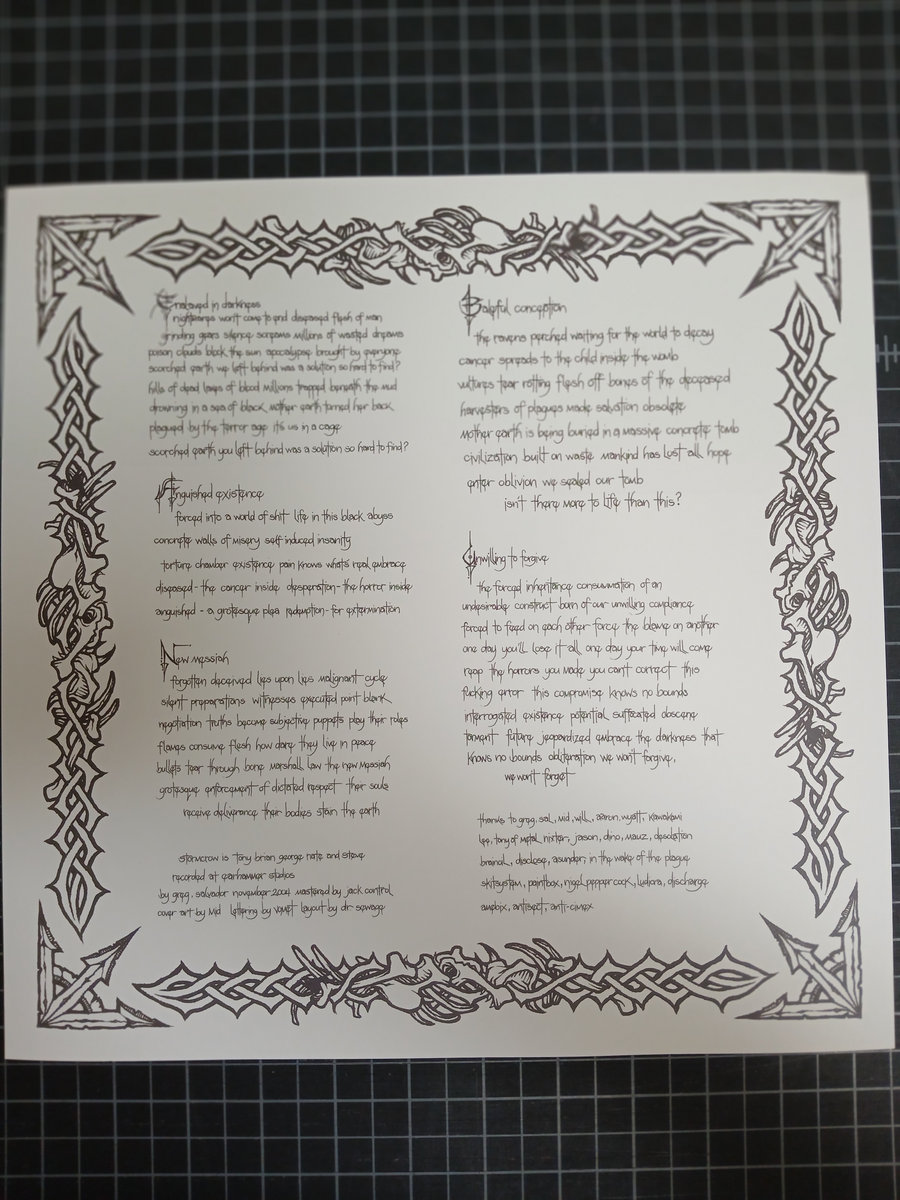 Enslaved in darkness
nightmares won't come to end diseased flesh of man
grinding gears silence screams millions of wasted dreams
poison clouds block the sun apocalypse brought by everyone
scorched earth we left behind was a solution so hard to find?
hills of dead lakes of blood Millions trapped beneath the mud
drowning in a sea of black mother earth turned her back
plagued by the terror age it's us in a cage
scorched earth you left behind was a solution so hard to find?
Anguished existence
forced into a world of shit life in this black abyss
concrete walls of misery self induced insanity
torture chamber existence pain knows what's real embrace
diseased - the cancer inside desperation - the horror inside
anguished - a grotesque plea redemption - for extermination
New messiah
forgotten deceived lies upon lies malignant cycle
silent preparations witnesses executed point blank
negotiation truths become subjective puppets play their roles
flames consume flesh how dare they live in peace
bullets tear through bone marshall law the new messiah
grotesque enforcement of dictated respect their souls
receive deliverance their bodies stain the earth
stormcrow is tony brian george nate and steve
recorded at earhammer studios
by greg. salvador november 2004 mastered by jack control
cover art by Mid lettering by vomet layout by dr sewage
Baleful conception
the ravens perched waiting for the world to decay
cancer spreads to the child inside the womb
vultures tear rotting flesh off bones of the deceased
harvesters of plagues made salvation obsolete
Mother earth is being buried in a massive concrete tomb
civilization built on waste mankind has lost all hope
enter oblivion we sealed our tomb
isn't there more to life than this?
Unwilling to forgive
the forced inheritance consummation of an
undesirable construct born of our unwilling compliance
forced to feed on each other force the blame on another
one day you'll lose it all one day your time will come
reap the horrors you made you can't correct this
fucking error this compromise knows no bounds
interrogated existence potential suffocated obscene
torment future jeopardized embrace the darkness that
knows no bounds obliteration we won't forgive,
we won't forget
thanks to greg, sal, mid, will, aaron, wyatt, kawakami
lee, tony of metal, nixter, jason, dino, mauz, desolation
brainoil, disclose, asunder, in the wake of the plague
skitsystem, paintbox, nigel pepper cock, ludicra, discharge
amebix, antisect, anti-cimex